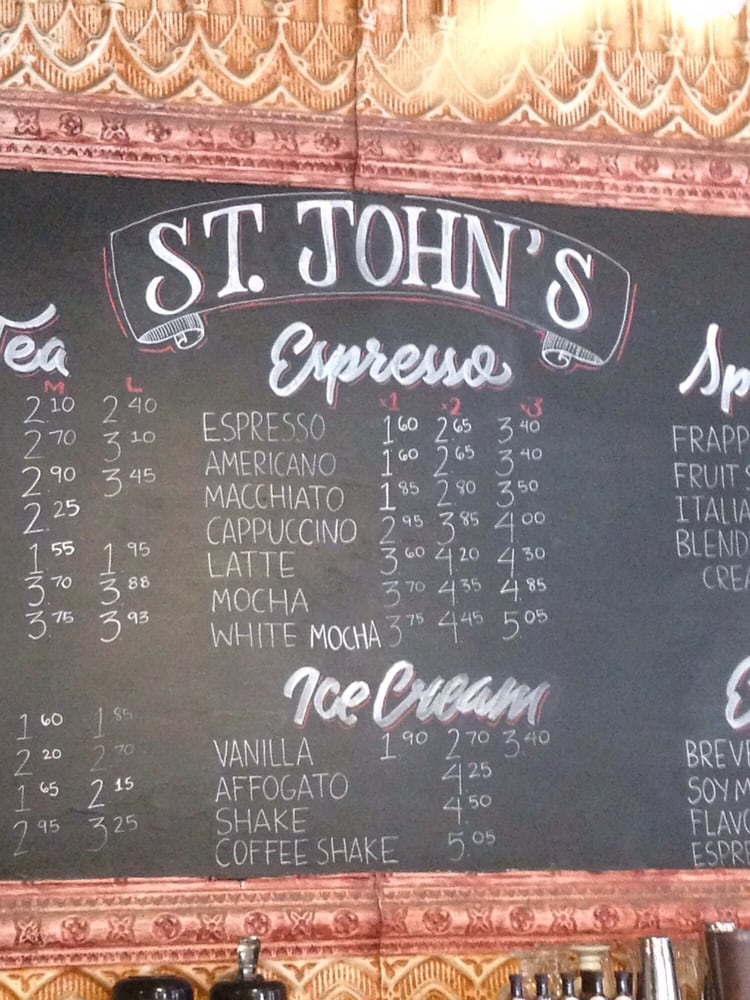 ST. JOHN'S
Tea
M L
2.10 2.40
2.70 3.10
2.90 3.45
2.25
1.55 1.95
3.70 3.88
3.75 3.93
1.60 1.85
2.20 2.70
1.65 2.15
2.95 3.25
Espresso
x1 x2 x3
ESPRESSO 1.60 2.65 3.40
AMERICANO 1.60 2.65 3.40
MACCHIATO 1.85 2.80 3.50
CAPPUCCINO 2.95 3.85 4.00
LATTE 3.60 4.20 4.30
MOCHA 3.70 4.35 4.85
WHITE MOCHA 3.75 4.45 5.05
Ice Cream
VANILLA 1.90 2.70 3.40
AFFOGATO 4.25
SHAKE 4.50
COFFEE SHAKE 5.05
Sp
FRAPP
FRUIT
ITALIA
BLEND
CREA
E
BREVE
SOY M
FLAVO
ESPRE